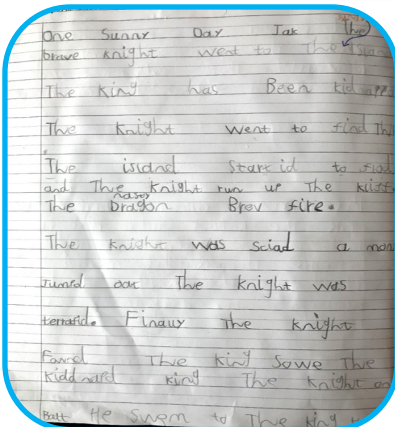 One Sunny Day Jak the
brave knight went to The Island
The King has Been kid napp
The Knight went to find Th
The island start id to flod
and The knight run up The kliff
nasty
The Dragon Brev fire.
The knight was sciad a mon
Jumrd oat The knight was
terrafid. Finauy The knight
Fawd The king Sowe The
Kidd naped king The knight on
Batt He Swem to The king